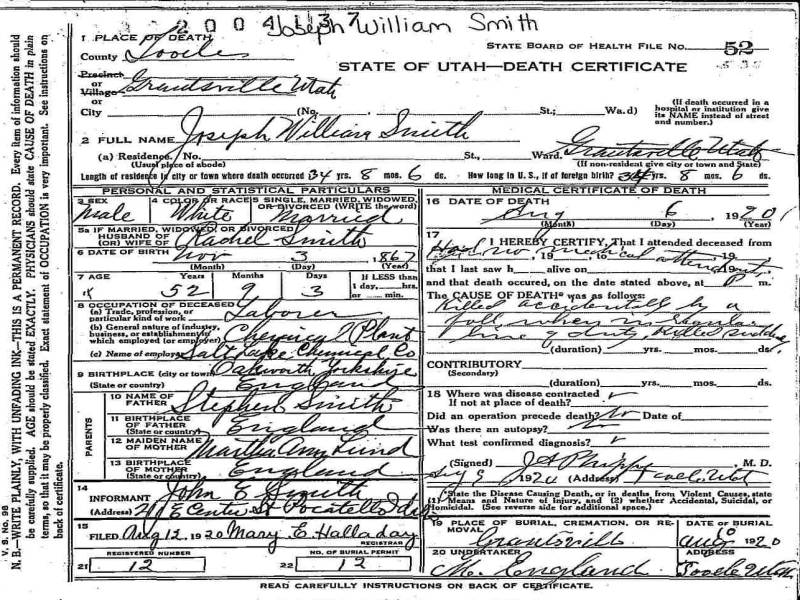 2004137
Joseph William Smith
1 PLACE OF DEATH
STATE BOARD OF HEALTH FILE NO. 52
County Tooele
STATE OF UTAH—DEATH CERTIFICATE
Precinct
or
Village Grantsville Utah
or
City (No. St.; Ward)
(If death occurred in a hospital or institution give its NAME instead of street and number.)
2 FULL NAME Joseph William Smith
(a) Residence. No. St., Ward. Grantsville, Utah
(Usual place of abode) (If non-resident give city or town and State)
Length of residence in city or town where death occurred 34 yrs. 8 mos. 6 ds. How long in U.S., if of foreign birth? 34 yrs. 8 mos. 6 ds.
PERSONAL AND STATISTICAL PARTICULARS
3 SEX 4 COLOR OR RACE 5 SINGLE, MARRIED, WIDOWED, OR DIVORCED (WRITE the word)
Male White Married
5a IF MARRIED, WIDOWED, OR DIVORCED
HUSBAND OF
(OR) WIFE OF Rachel Smith
6 DATE OF BIRTH Nov 3 1867
(Month) (Day) (Year)
7 AGE Years Months Days If LESS than
52 9 3 1 day, hrs.
or min.
8 OCCUPATION OF DECEASED
(a) Trade, profession, or
particular kind of work Laborer
(b) General nature of industry,
business, or establishment in
which employed (or employer) Chemical Plant
(c) Name of employer Salt Lake Chemical Co
9 BIRTHPLACE (city or town) Oakworth Yorkshire
(State or country) England
PARENTS
10 NAME OF
FATHER Stephen Smith
11 BIRTHPLACE
OF FATHER
(State or country) England
12 MAIDEN NAME
OF MOTHER Martha Ann Lund
13 BIRTHPLACE
OF MOTHER
(State or country) England
14
INFORMANT John E Smith
(Address) E Center St Pocatello Ida
15
FILED Aug 12, 1920 Mary E. Halladay
REGISTRAR
REGISTERED NUMBER NO. OF BURIAL PERMIT
21 12 22 12
MEDICAL CERTIFICATE OF DEATH
16 DATE OF DEATH
Aug 6, 1920
(Month) (Day) (Year)
17
I HEREBY CERTIFY, That I attended deceased from
Had no, 19 medical attendant, 19
that I last saw h alive on 19
and that death occured, on the date stated above, at P m.
The CAUSE OF DEATH* was as follows:
Killed accidentally by a
fall when in regular
line of duty, Killed suddenly
(duration) yrs. mos. ds.
CONTRIBUTORY
(Secondary)
(duration) yrs. mos. ds.
18 Where was disease contracted
If not at place of death?
Did an operation precede death? No Date of
Was there an autopsy? No
What test confirmed diagnosis?
(Signed) J A Phipps M. D.
Aug 9 1920 (Address) Tooele Utah
*State the Disease Causing Death, or in deaths from Violent Causes, state
(1) Means and Nature of Injury, and (2) whether Accidental, Suicidal, or
Homicidal. (See reverse side for additional space.)
19 PLACE OF BURIAL, CREMATION, OR RE-
MOVAL DATE OF BURIAL
Grantsville Aug 10 1920
20 UNDERTAKER ADDRESS
M. England Tooele Utah
READ CAREFULLY INSTRUCTIONS ON BACK OF CERTIFICATE.
V. S. No. 98
N. B.—WRITE PLAINLY, WITH UNFADING INK—THIS IS A PERMANENT RECORD. Every item of information should
be carefully supplied. AGE should be stated EXACTLY. PHYSICIANS should state CAUSE OF DEATH in plain
terms, so that it may be properly classified. Exact statement of OCCUPATION is very important. See instructions on
back of certificate.